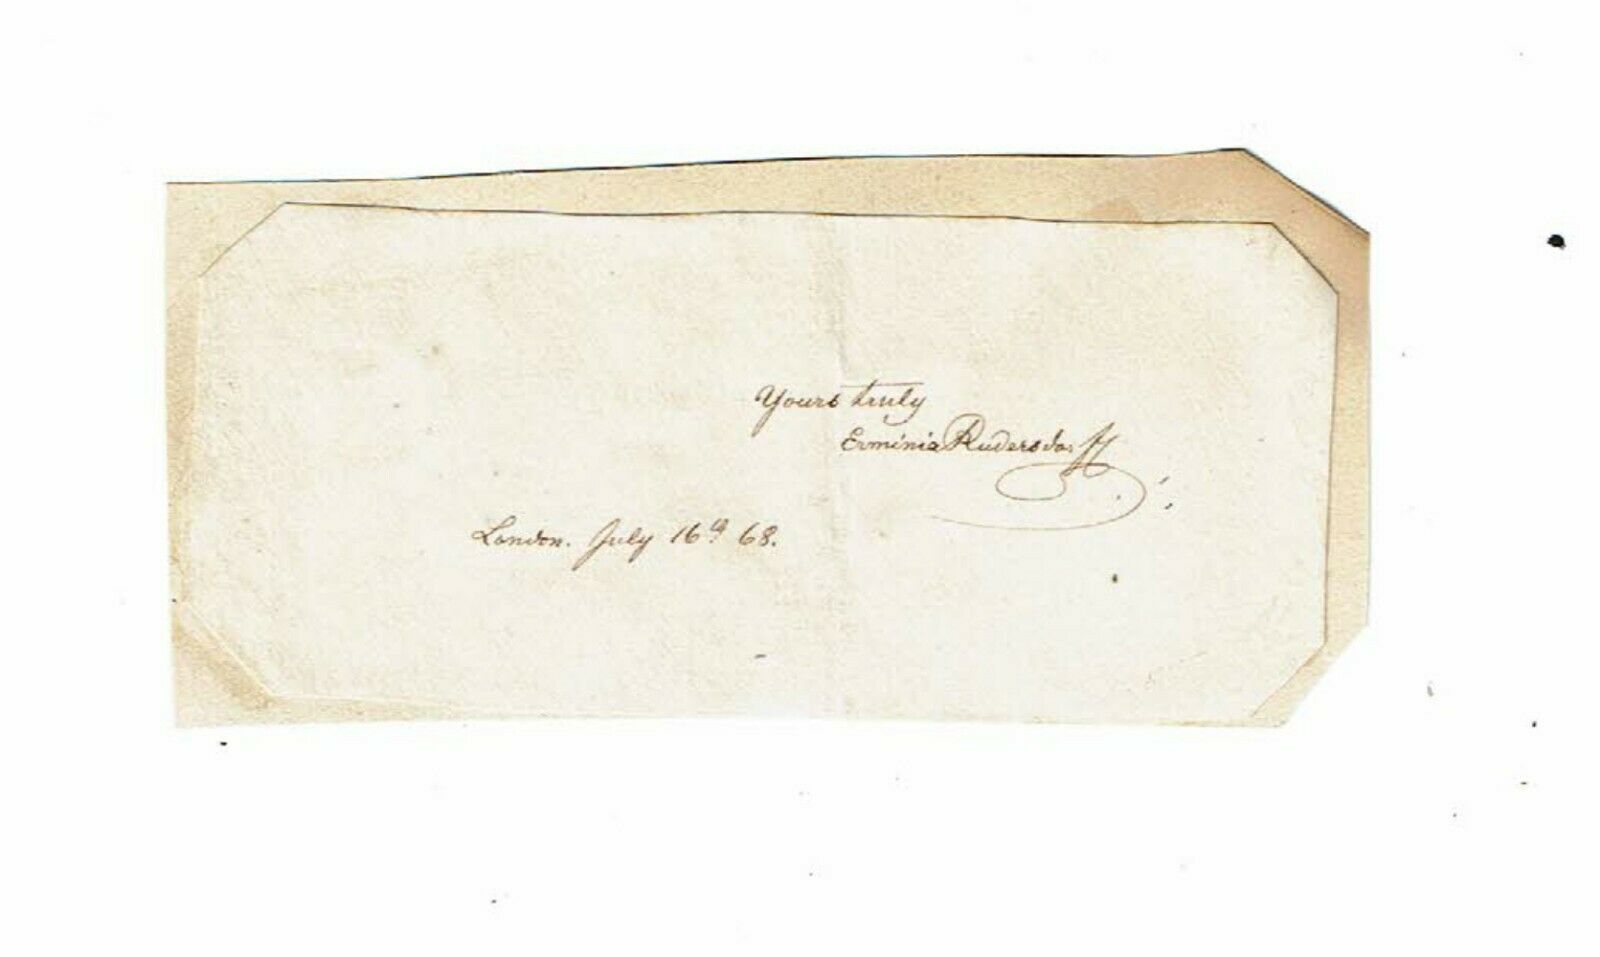 Yours truly
Erminia Rudersdorff
London. July 16th 68.